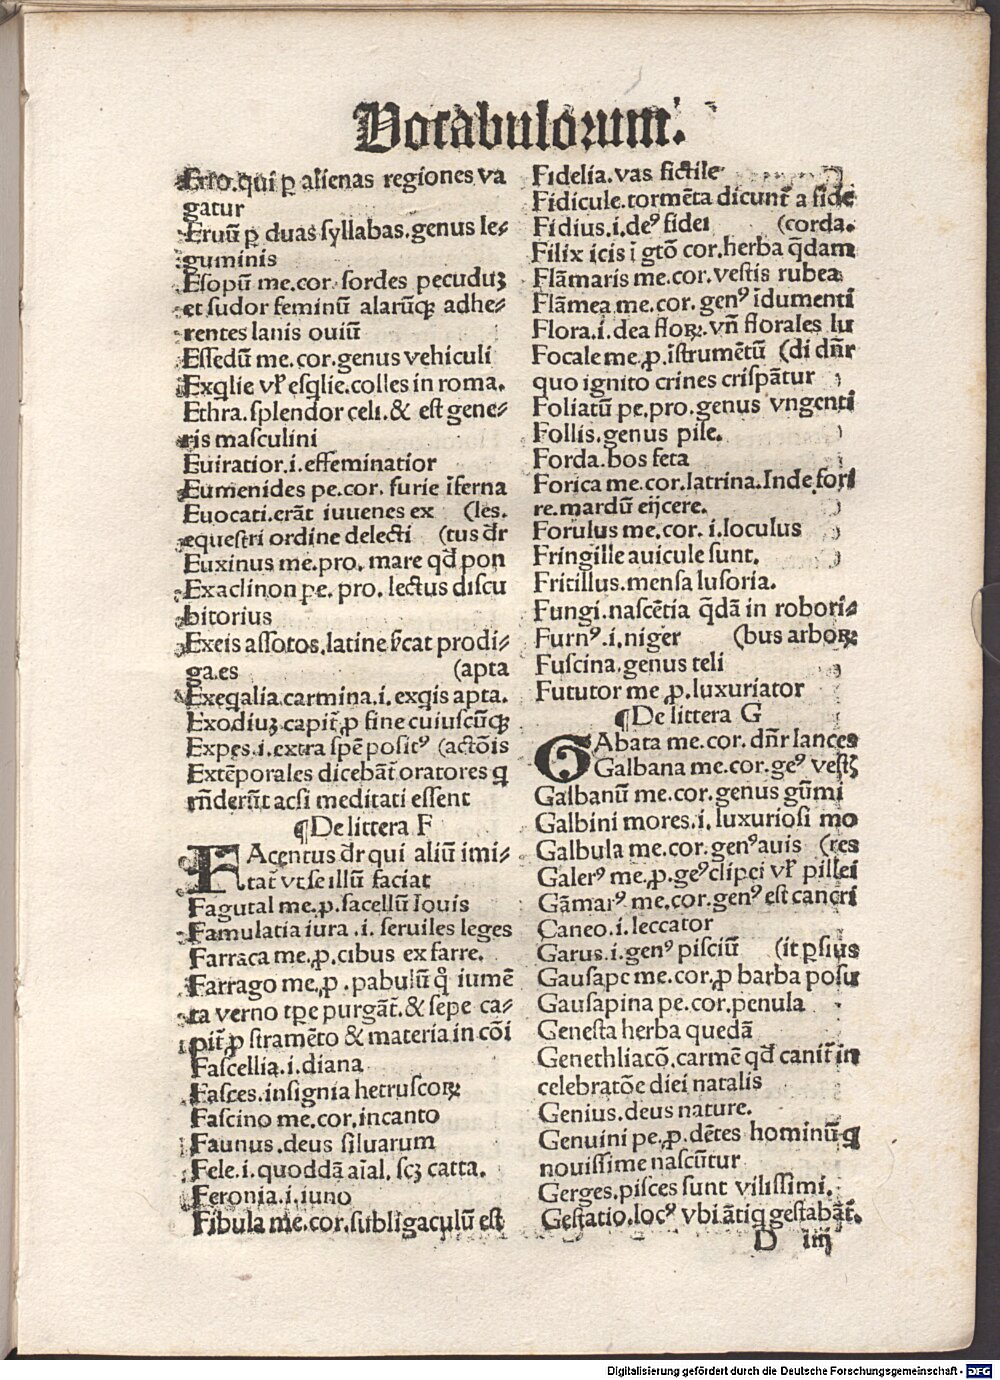 Vocabulorum.
Erro.qui ꝑ alienas regiones va
gatur
Eruū ꝑ duas syllabas.genus le-
guminis
Esopū me.cor. sordes pecuduꝫ
et sudor feminū alarūqꝫ adhe-
rentes lanis ouiū
Essedū me.cor.genus vehiculi
Exqlie vł esqlie.colles in roma.
Ethra.splendor celi.& est gene-
ris masculini
Euiratior.i.effeminatior
Eumenides pe.cor. furie īferna
Euocati.erāt iuuenes ex (les.
equestri ordine delecti (tus dr̄
Euxinus me.pro. mare qđ pon
Exaclinon pe. pro. lectus discu
bitorius
Exeis assotos.latine s̄cat prodi-
ga.es (apta
Exeqalia.carmina.i.exqis apta.
Exodiuꝫ.capit̄ ꝓ fine cuiuscūqꝫ
Expes.i.extra spē positꝰ (actōis
Extēporales dicebāt oratores q
rn̄derūt acsi meditati essent
¶De littera F
FAcentus dr̄ qui aliū imi-
tat̄ vt se illū faciat
Fagutal me.ꝓ.sacellū Iouis
Famulatia iura .i. seruiles leges
Farraca me.ꝓ.cibus ex farre.
Farrago me.ꝓ.pabulū qͦ iumē
ta verno tꝑe purgāt.& sepe ca-
pit̄ ꝓ stramēto & materia in cōi
Fascellia.i.diana
Fasces.insignia hetruscoꝝ
Fascino me.cor.incanto
Faunus.deus siluarum
Fele.i.quoddā aīal, scꝫ catta.
Feronia.i.iuno
Fibula me.cor.subligaculū est
Fidelia.vas fictile
Fidicule.tormēta dicunt̄ a fide
Fidius.i.deꝰ fidei (corda.
Filix icis ī gtō cor.herba q̄dam
Flāmaris me.cor.vestis rubea
Flāmea me.cor.genꝰ īdumenti
Flora.i.dea floꝝ.vn̄ florales lu
Focale me.ꝓ.īstrumētū (di dn̄r
quo ignito crines crispātur
Foliatū pe.pro.genus vngenti
Follis.genus pile.
Forda.bos feta
Forica me.cor.latrina.Inde fori
re.mardū eijcere.
Forulus me.cor.i.loculus
Fringille auicule sunt.
Fritillus.mensa lusoria.
Fungi.nascētia q̄dā in robori-
Furnꝰ.i.niger (bus arboꝝ
Fuscina.genus teli
Fututor me.ꝓ.luxuriator
¶De littera G
GAbata me.cor. dn̄r lances
Galbana me.cor.geꝰ vestꝭ
Galbanū me.cor.genus gūmi
Galbini mores.i.luxuriosi mo
Galbula me.cor.genꝰ auis (res
Galerꝰ me.ꝓ.geꝰ clipei vł pillei
Gāmarꝰ me.cor.genꝰ est cancri
Ganeo.i.leccator
Garus.i.genꝰ pisciū (it ꝑsius
Gausape me.cor.ꝓ barba posu
Gausapina pe.cor.penula
Genesta herba quedā
Genethliacō.carmē qđ canit̄ in
celebratōe diei natalis
Genius.deus nature.
Genuini pe.ꝓ.dētes hominū q
nouissime nascūtur
Gerges.pisces sunt vilissimi.
Gestatio.locꝰ vbi ātiq gestabāt̄.
D iiij
Digitalisierung gefördert durch die Deutsche Forschungsgemeinschaft - DFG